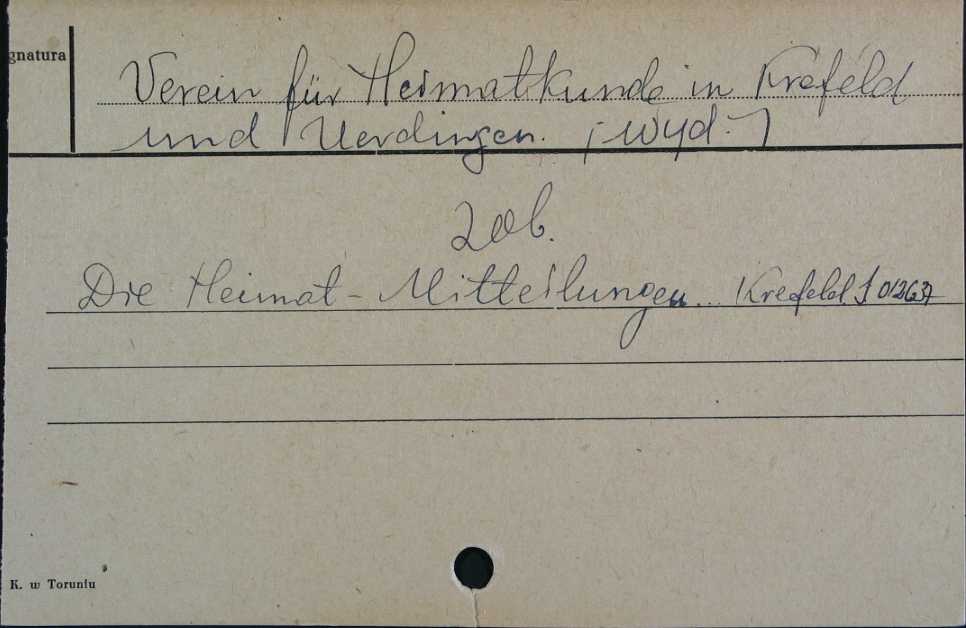 gnatura
Verein für Heimatkunde in Krefeld
und Uerdingen. (Wyd.)
zob.
Die Heimat - Mitteilungen... Krefeld
K. w Toruniu